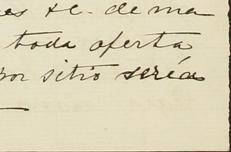 es se dema
toda oferta
por sitio seréa